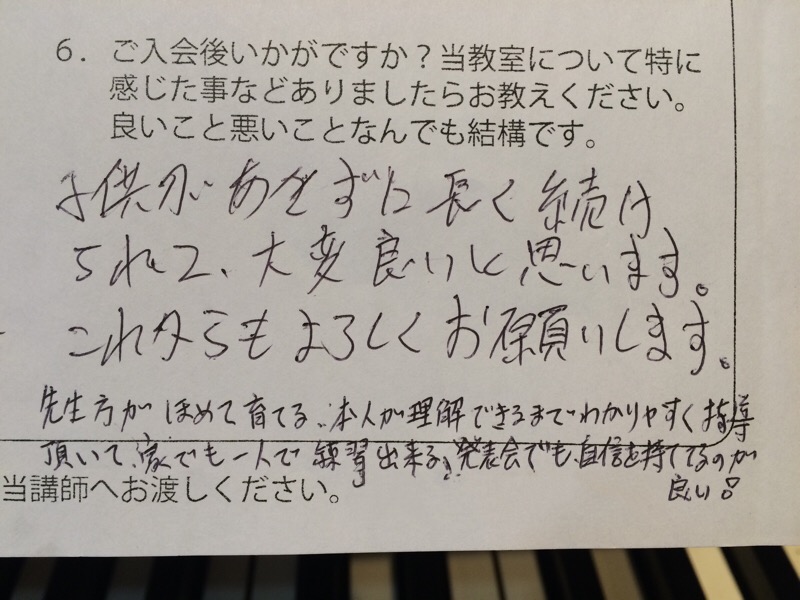 6. ご入会後いかがですか？当教室について特に
感じた事などありましたらお教えください。
良いこと悪いことなんでも結構です。
子供があきずに長く続け
られて、大変良いと思います。
これからもよろしくお願いします。
先生方がほめて育てる、本人が理解できるまでわかりやすく指導
頂いて、家でも一人で練習出来る。発表会でも、自信を持ててるのが
良い。
当講師へお渡しください。